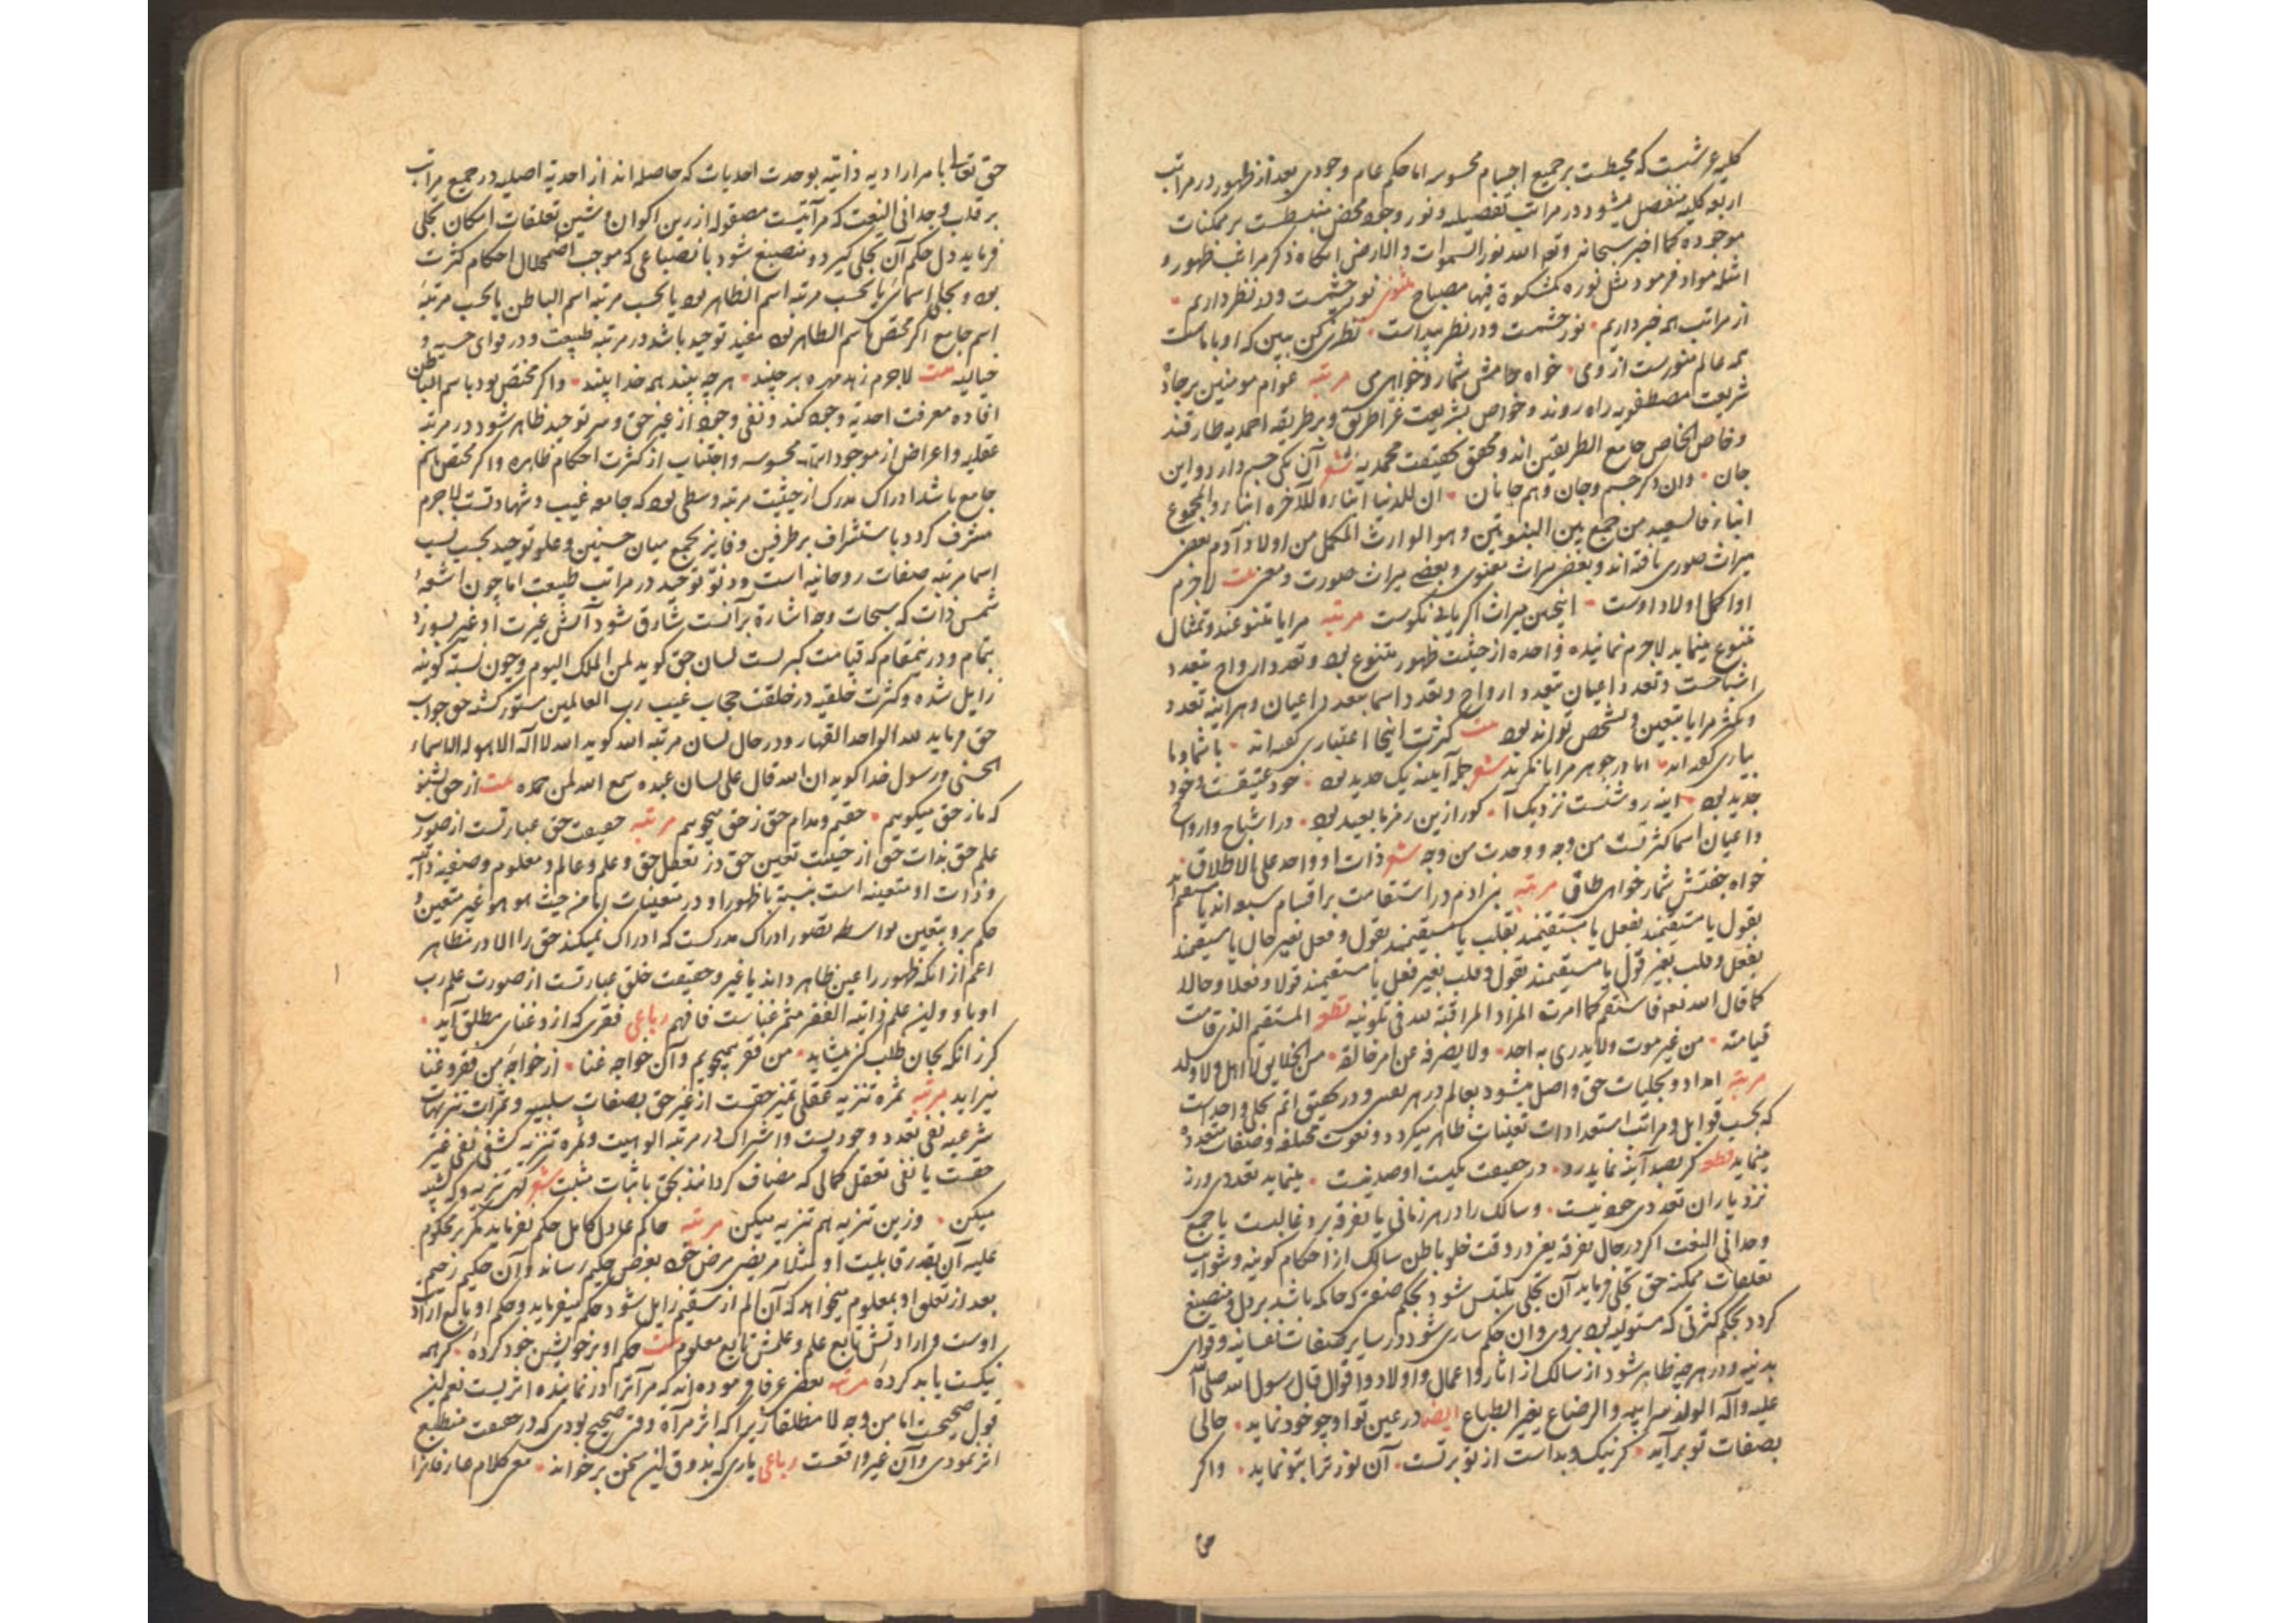 کلیه عرشست که محیطست بر جمیع اجسام محسوسه اما حکم عام وجودی بعد از ظهور در مراتب
اربعه کلیه منفصل میشود در مراتب تفصیلیه و نور وجود محض منبسطست بر ممکنات
موجوده کما اخبر سبحانه و تع الله نور السموات والارض انکاه ذکر مراتب ظهور و
امثله مواد فرمود مثل نوره کمشکوة فیها مصباح مثنوی نور چشمست ودر نظر داریم
از مراتب همه خبر داریم نور چشمست ودر نظر پیداست نظری کن ببین که او با ماست
همه عالم منورست از وی خواه جامش شمار و خواهی می مرتبه عوام مومنین بر جادهٔ
شریعت مصطفویه راه روند و خواص بشریعت غرا طریق و بر طریقه احمدیه طارقند
وخاص الخاص جامع الطریقین اند و محقق بحقیقت محمدیه شعر آن یکی جسم دارد و این
جان وان دکر جسم وجان وهم جانان ان للدنیا ابناء وللآخره ابناء والمجموع
ابناء فالسعید من جمع بین البنوتین وهو الوارث المکمل من اولاد آدم بعضی
میراث صوری یافته اند و بعضی میراث معنوی و بعضی میراث صورت و معنی بیت لاجرم
او اکمل اولاد اوست اینچنین میراث اکر یابی نکوست مرتبه مرایا متنوعند و تمثال
متنوع مینماید لاجرم نماینده واحده از حیثیت ظهور متنوع بود و تعدد ارواح بتعدد
اشباحست و تعدد اعیان بتعدد ارواح و تعدد اسما بتعدد اعیان وهر اینه تعدد
و تکثر مرایا بتعین و تشخص تواند بود بیت کثرت اینجا اعتباری کفته اند با شما و با
یاری کفته اند اما در جوهر مرایا نکرند شعر جمله آیینه یک حدید بود خود عتیقست و خود
جدید بود اینه روشنست نزدیک آ کور ازین رمز ما بعید بود در اشباح و ارواح
واعیان اسما کثرتست من وجه و وحدت من وجه شعر ذات او واحد علی الاطلاق
خواه جفتش شمار خواهی طاق مرتبه بنی ادم در استقامت بر اقسام سبعه اند یا مستقیمند
بقول یا مستقیمند بفعل یا مستقیمند بقلب یا مستقیمند بقول و فعل بغیر حال یا مستقیمند
بفعل و قلب بغیر قول یا مستقیمند بقول و قلب بغیر فعل یا مستقیمند قولا و فعلا و حالا
کما قال الله تع فاستقم کما امرت المراد المراقبة لله فی تلوینه قطعه المستقیم الذی قامت
قیامته من غیر موت ولا یدری به احد ولا یصرفه عن امر خالقه من الخلایق لا اهل ولا ولد
مرتبه امداد و تجلیات حق واصل میشود بعالم در هر نفس و در تحقیق اتم تجلی واحد است
که بحسب قوابل و مراتب استعدادات تعینات ظاهر میکردد و نعوت مختلفه و صفات متعدده
مینماید قطعه کر بصد آینه نماید رو در حقیقت یکیست او صد نیست مینماید تعددی ورنه
نزد یاران تعددی خود نیست وسالک را در هر زمانی یا تفرقه برو غالبست یا جمع
وحدانی النعت اکر در حال تفرقه یعنی در وقت خلو باطن سالک از احکام کونیه و شوایب
تعلقات ممکنه حق تجلی فرماید آن تجلی ملتبس شود بحکم صفتی که حاکمه باشد بر دل و منصبغ
کردد بحکم کثرتی که مستولیه بود بروی وان حکم ساری شود در سایر صفات نفسانیه و قوای
بدنیه و در هر چه ظاهر شود از سالک از اثار و اعمال و اولاد و اقوال قال رسول الله صلی الله
علیه و آله الولد سر ابیه والرضاع یغیر الطباع ایضا در عین تو او چو خود نماید حالی
بصفات تو برآید کر نیک و بداست از تو برتست آن نور ترا بتو نماید واکر
حق تعالی بامر ارادیه ذاتیه بوحدت احدیات که حاصله اند از احدیة اصلیه در جمیع مراتب
بر قلب وجدانی النعت که مرآتیست مصقوله از رین اکوان و شین تعلقات امکان تجلی
فرماید دل حکم آن تجلی کیرد و منصبغ شود بانصباغی که موجب اضمحلال احکام کثرت
بود و تجلی اسمائی یا بحسب مرتبه اسم الظاهر بود یا بحسب مرتبه اسم الباطن یا بحسب مرتبهٔ
اسم جامع اکر مختص باسم الظاهر بود مفید توحید باشد در مرتبه طبیعت و در قوای حسیه و
خیالیه بیت لاجرم زهد مهره برچینند هرچه بینند همه خدا بینند واکر مختص بود باسم الباطن
افاده معرفت احدیة وجود کند و نفی وجود از غیر حق و سر توحید ظاهر شود در مرتبه
عقلیه و اعراض از موجودات محسوسه و اجتناب از کثرت احکام ظاهره واکر مختص باسم
جامع باشد ادراک مدرک از حیثیت مرتبه وسطی بود که جامعه غیب و شهادتست لاجرم
مشرف کردد باستشراف بر طرفین و فایز بجمع میان حسنیین و علو توحید بحسب نسب
اسما مرتبه صفات روحانیه است ودنو توحید در مراتب طبیعت اما چون اشعهٔ
شمس ذات که سبحات وجه اشارة برآنست شارق شود آتش غیرت او غیر بسوزد
بتمام و درینمقام که قیامت کبریست لسان حق کوید لمن الملک الیوم و چون نسبة کونیه
زایل شده و کثرت خلقیه در خلقت حجاب غیب رب العالمین مستور کشته حق جواب
حق فرماید لله الواحد القهار و در حال لسان مرتبه الله کوید الله لا اله الا هو له الاسماء
الحسنی و رسول خدا کوید ان الله قال علی لسان عبده سمع الله لمن حمده بیت از حق بشنو
که ما ز حق میکوییم حقیم و مدام حق ز حق میجوییم مرتبه حقیقت حق عبارتست از صورت
علم حق بذات حق از حیثیت تعین حق در تعقل حق و علم و عالم و معلوم و صفیه ذاتیه
وذات او متعینه است بنسبة با ظهور او در متعینات اما من حیث هو هو غیر متعین و
حکم برو بتعین بواسطه تصور ادراک مدرکست که ادراک نمیکند حق را الا در مظاهر
اعم از انکه ظهور را عین ظاهر داند یا غیر و حقیقت خلق عبارتست از صورت علم رب
او با و ولین علم ذاتیه الفقر مثمر غناست فافهم رباعی فقری که ازو غنای مطلق آید
کر زانکه بجان طلب کنی میشاید من فقر میجویم وآن خواجه غنا از خواجه من فقر و غنا
میزاید مرتبه ثمره تنزیه عقلی تمیز حقست از غیر حق بصفات سلبیه و ثمرات تنزیهات
شرعیه نفی تعدد وجودیست واشتراک در مرتبه الوهیت و ثمره تنزیه کشفی نفی غیر
حقست یا نفی تعقل کمالی که مضاف کردانند بحق باثبات مثبت شعر کهی تنزیه و که تشبیه
میکن وزین تنزیه هم تنزیه میکن مرتبه حاکم عادل کامل حکم نفرماید مکر بر محکوم
علیه آن بقدر قابلیت او مثلا مریضی مرض خود بعرض حکیم رساند و آن حکیم رحیم
بعد از تعلق او بمعلوم میخواهد که آن الم از سقیم زایل شود حکم میفرماید وحکم او تابع ارادت
اوست و ارادتش تابع علم و علمش تابع معلوم بیت حکم او بر خویشتن خود کردهٔ کر همه
نیکست یا بد کردهٔ مرتبه بعضی عرفا فرموده اند که مرآترا در نماینده اثریست نعم لین
قول صحیحست اما من وجه لا مطلقا زیرا که اثر مرآة وقتی صحیح بودی که در حقیقت منطبع
اثر نمودی وآن غیر واقعست رباعی یاری که بذوق این سخن برخواند معنی کلام عارفانرا